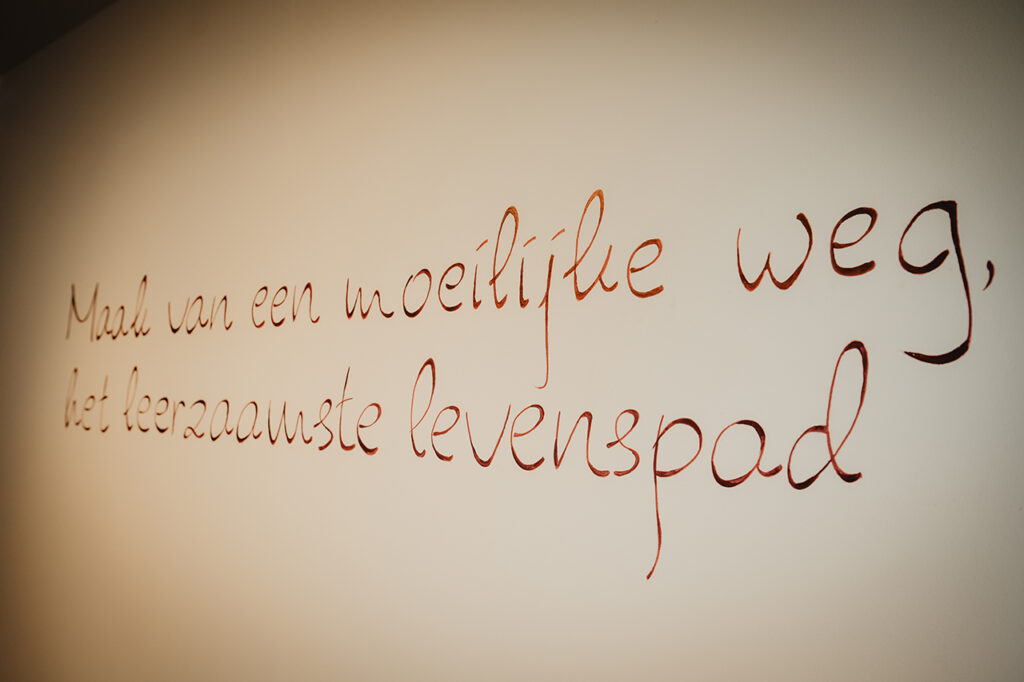 Maak van een moeilijke weg,
het leerzaamste levenspad